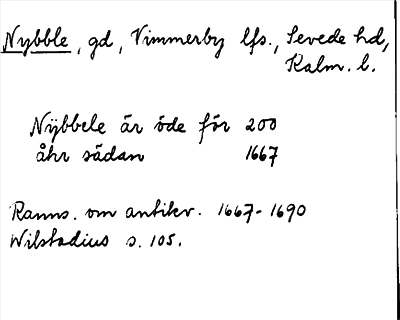 Nybble, gd, Vimmerby lfs., Sevede hd,
Kalm. l.
Nÿbbele är öde för 200
åhr sådan 1667
Ranns. om antikv. 1667-1690
Wilstadius s. 105.